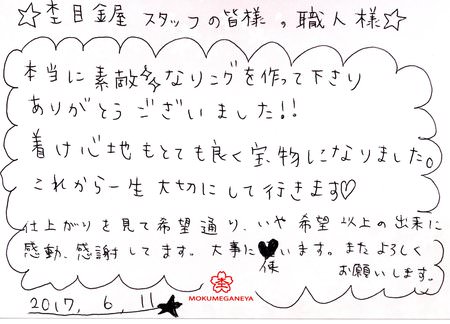 ☆杢目金屋 スタッフの皆様 。職人様☆
本当に素敵なリングを作って下さり
ありがとうございました!!
着け心地もとても良く宝物になりました。
これから一生大切にして行きます♡
仕上がりを見て希望通り、いや希望以上の出来に
感動、感謝してます。大事に使います。またよろしく
お願いします。
MOKUMEGANEYA
2017. 6. 11★